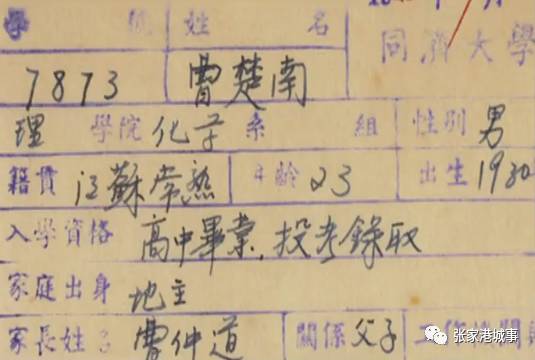 學 號 姓 名
7873 曹楚南 同濟大學
理 學院 化学 系 組 性别 男
籍貫 江蘇常熟 年齡 23 出生 1930
入學資格 高中畢業,投考錄取
家庭出身 地主
家長姓名 曹仲道 關係 父子
张家港城事